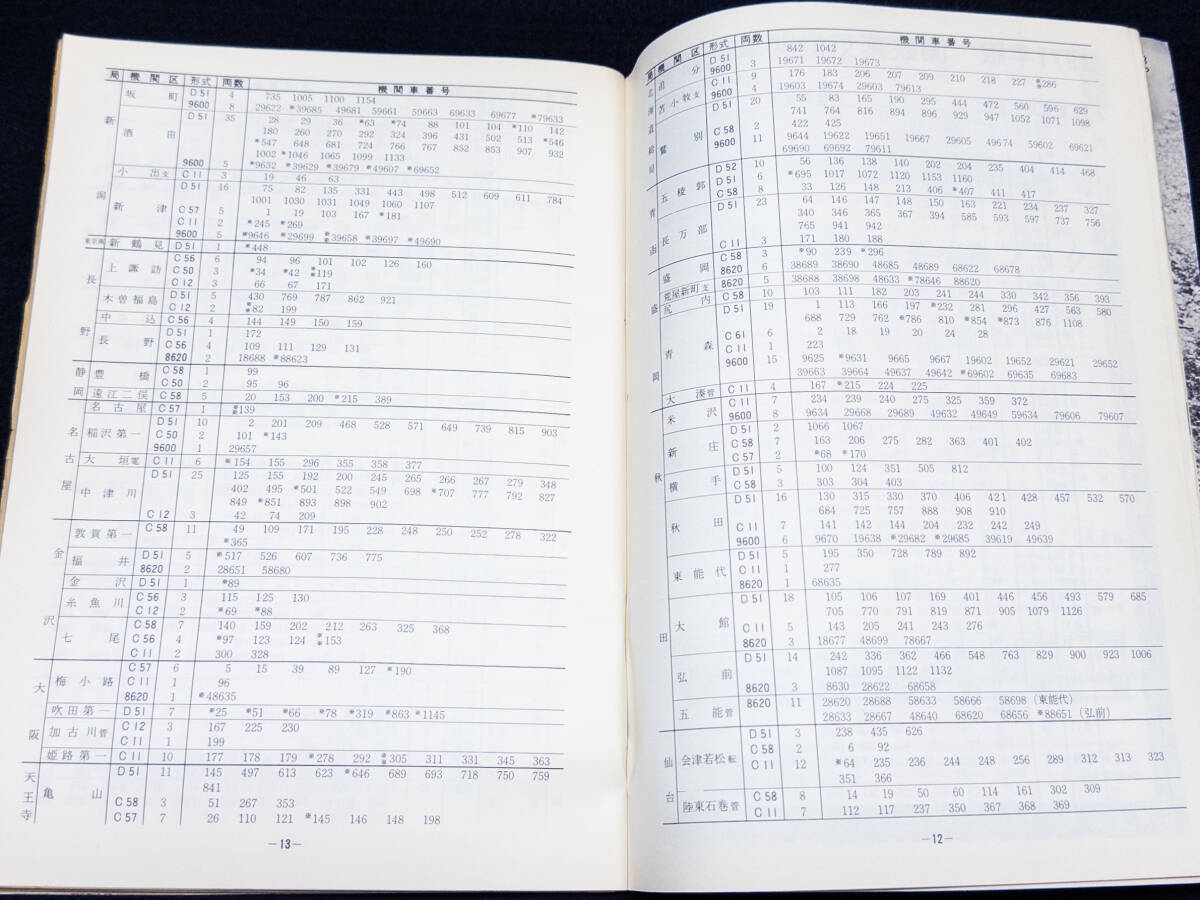 局 機関区 形式 両数 機関車番号
分 D51 842 1042
9600 3 19671 19672 19673
苫小牧支 C11 9 176 183 206 207 209 210 218 227 *286
9600 4 19603 19674 29603 79613
鷲別 D51 20 55 83 165 190 295 444 472 560 596 629
741 764 816 894 896 929 947 1052 1071 1098
C58 2 422 425
9600 11 9644 19622 19651 19667 29605 49674 59602 69621
69690 69692 79611
五稜郭 D52 10 56 136 138 140 202 204 235 404 414 468
D51 6 *695 1017 1072 1120 1153 1160
C58 8 33 126 148 213 406 *407 411 417
長万部 D51 23 64 146 147 148 150 163 221 234 237 327
340 346 365 367 394 585 593 597 737 756
765 941 942
C11 3 171 180 188
盛岡 C58 3 *90 239 *296
8620 6 38689 38690 48685 48689 68622 68678
荒屋新町支 8620 5 38688 38698 48633 *78646 88620
尻内 C58 10 103 111 182 203 241 244 330 342 356 393
青森 D51 19 1 113 166 197 *232 281 296 427 563 580
688 729 762 *786 810 *854 *873 876 1108
C61 6 2 18 19 20 24 28
C11 1 223
9600 15 9625 *9631 9665 9667 19602 19652 29621 29652
39663 39664 49637 49642 *69602 69635 69683
大湊管 C11 4 167 *215 224 225
米沢 C11 7 234 239 240 275 325 359 372
9600 8 9634 29668 29689 49632 49649 59634 79606 79607
新庄 D51 2 1066 1067
C58 7 163 206 275 282 363 401 402
C57 2 *68 *170
横手 D51 5 100 124 351 505 812
C58 3 303 304 403
秋田 D51 16 130 315 330 370 406 421 428 457 532 570
684 725 757 888 908 910
C11 7 141 142 144 204 232 242 249
9600 6 9670 19638 *29682 *29685 39619 49639
東能代 D51 5 195 350 728 789 892
C11 1 277
8620 1 68635
大館 D51 18 105 106 107 169 401 446 456 493 579 685
705 770 791 819 871 905 1079 1126
C11 5 143 205 241 243 276
8620 3 18677 48699 78667
弘前 D51 14 242 336 362 466 548 763 829 900 923 1006
1087 1095 1122 1132
8620 3 8630 28622 68658
五能管 8620 11 28620 28688 58633 58666 58698 (東能代)
28633 28667 48640 68620 68656 *88651 (弘前)
仙台 会津若松転 D51 3 238 435 626
C58 2 6 92
C11 12 *64 235 236 244 248 256 289 312 313 323
351 366
陸東石巻管 C58 8 14 19 50 60 114 161 302 309
C11 7 112 117 237 350 367 368 369
—12—
局 機関区 形式 両数 機関車番号
新潟 坂町 D51 4 735 1005 1100 1154
9600 8 29622 *39685 49681 59661 59663 69633 69677 *79633
酒田 D51 35 28 29 36 *63 *74 88 101 104 *110 142
180 260 270 292 324 396 431 502 513 *546
*547 648 681 724 766 767 852 853 907 932
1002 *1046 1065 1099 1133
9600 5 *9632 *39629 *39679 *49607 *69652
小出支 C11 3 19 46 63
新津 D51 16 75 82 135 331 443 498 512 609 611 784
1001 1030 1031 1049 1060 1107
C57 5 1 19 103 167 *181
C11 2 *245 *269
9600 5 *9646 *29699 *39658 *39697 *49690
東京南 新鶴見 D51 1 *448
長野 上諏訪 C56 6 94 96 101 102 126 160
C50 3 *34 *42 *119
C12 3 66 67 171
木曽福島 D51 5 430 769 787 862 921
C12 2 *82 199
中込 C56 4 144 149 150 159
長野 D51 1 172
C56 4 109 111 129 131
8620 2 18688 *88623
静岡 豊橋 C58 1 99
C50 2 95 96
遠江二俣 C58 5 20 153 200 *215 389
名古屋 名古屋 C57 1 *139
稲沢第一 D51 10 2 201 209 468 528 571 649 739 815 903
C50 2 101 *143
9600 1 29657
大垣電 C11 6 *154 155 296 355 358 377
中津川 D51 25 125 155 192 200 245 265 266 267 279 348
402 495 *501 522 549 698 *707 777 792 827
849 *851 893 898 902
C12 3 42 74 209
金沢 敦賀第一 C58 11 49 109 171 195 228 248 250 252 278 322
*365
福井 D51 5 *517 526 607 736 775
8620 2 28651 58680
金沢 D51 1 *89
糸魚川 C56 3 115 125 130
C12 2 *69 *88
七尾 C58 7 140 159 202 212 263 325 368
C56 4 *97 123 124 *153
C11 2 300 328
大阪 梅小路 C57 6 5 15 39 89 127 *190
C11 1 96
8620 1 *48635
吹田第一 D51 7 *25 *51 *66 *78 *319 *863 *1145
加古川管 C12 3 167 225 230
C11 1 199
姫路第一 C11 10 177 178 179 *278 292 *305 311 331 345 363
天王寺 亀山 D51 11 145 497 613 623 *646 689 693 718 750 759
841
C58 3 51 267 353
C57 7 26 110 121 *145 146 148 198
—13—